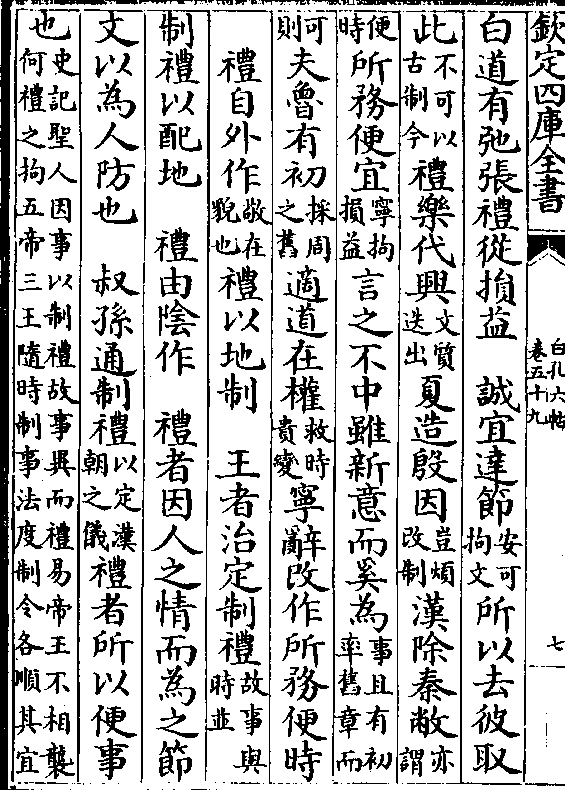 欽定四庫全書
白孔六帖
卷五十九
七
白道有弛張禮從損益　誠宜達節安可拘文所以去彼取
此不可以古制今禮樂代興文質迭出夏造殷因豈煩改制漢除秦敝亦謂
便時所務便宜寧拘損益言之不中雖新意而奚為事且有初率舊章而
可則夫魯有初採周之舊適道在權救時貴變寧辭改作所務便時
禮自外作敬在貌也禮以地制　王者治定制禮故事與時並
制禮以配地　禮由陰作　禮者因人之情而為之節
文以為人防也　叔孫通制禮以定漢朝之儀禮者所以便事
也史記聖人因事以制禮故事異而禮易帝王不相襲何禮之拘五帝三王隨時制事法度制令各順其宜